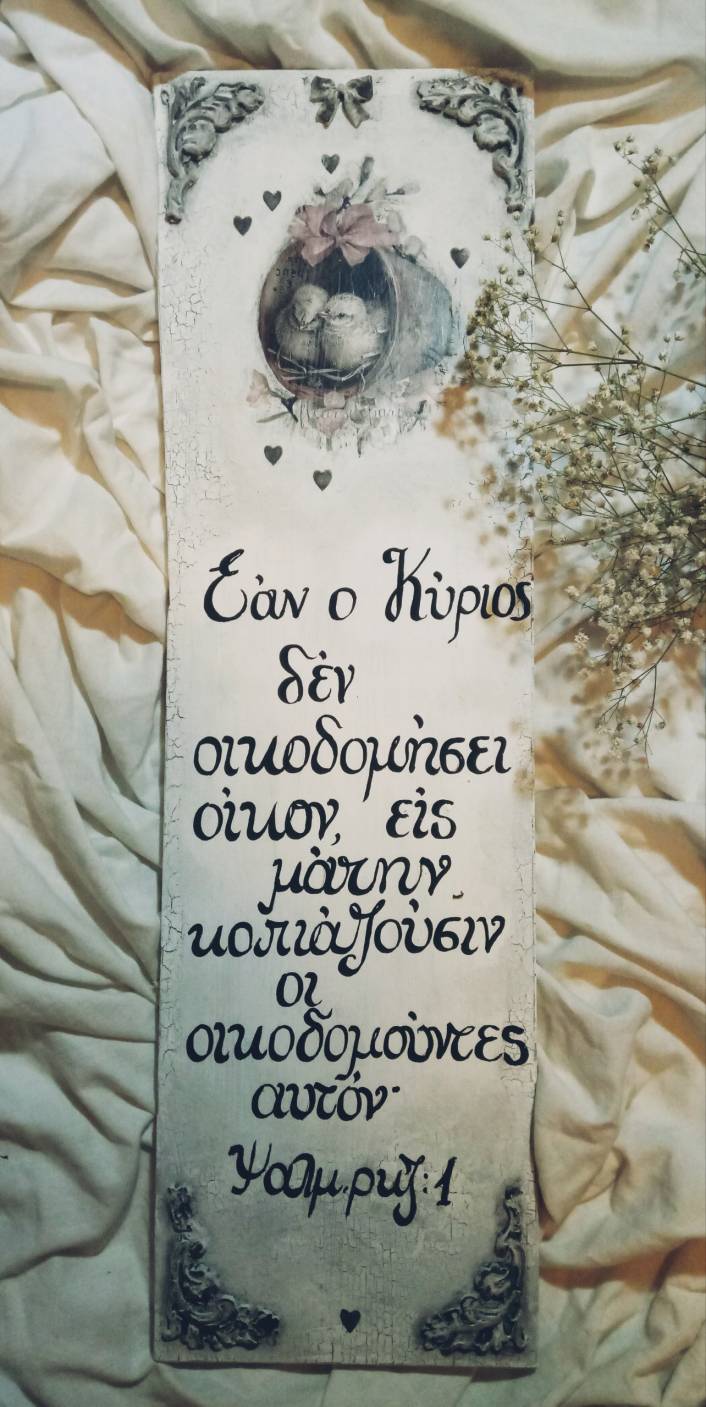 Εάν ο Κύριος
δέν
οικοδομήσει
οίκον, είς
μάτην
κοπιάζούσιν
οι
οικοδομούντες
αυτόν·
Ψαλμ.ρκζ:1